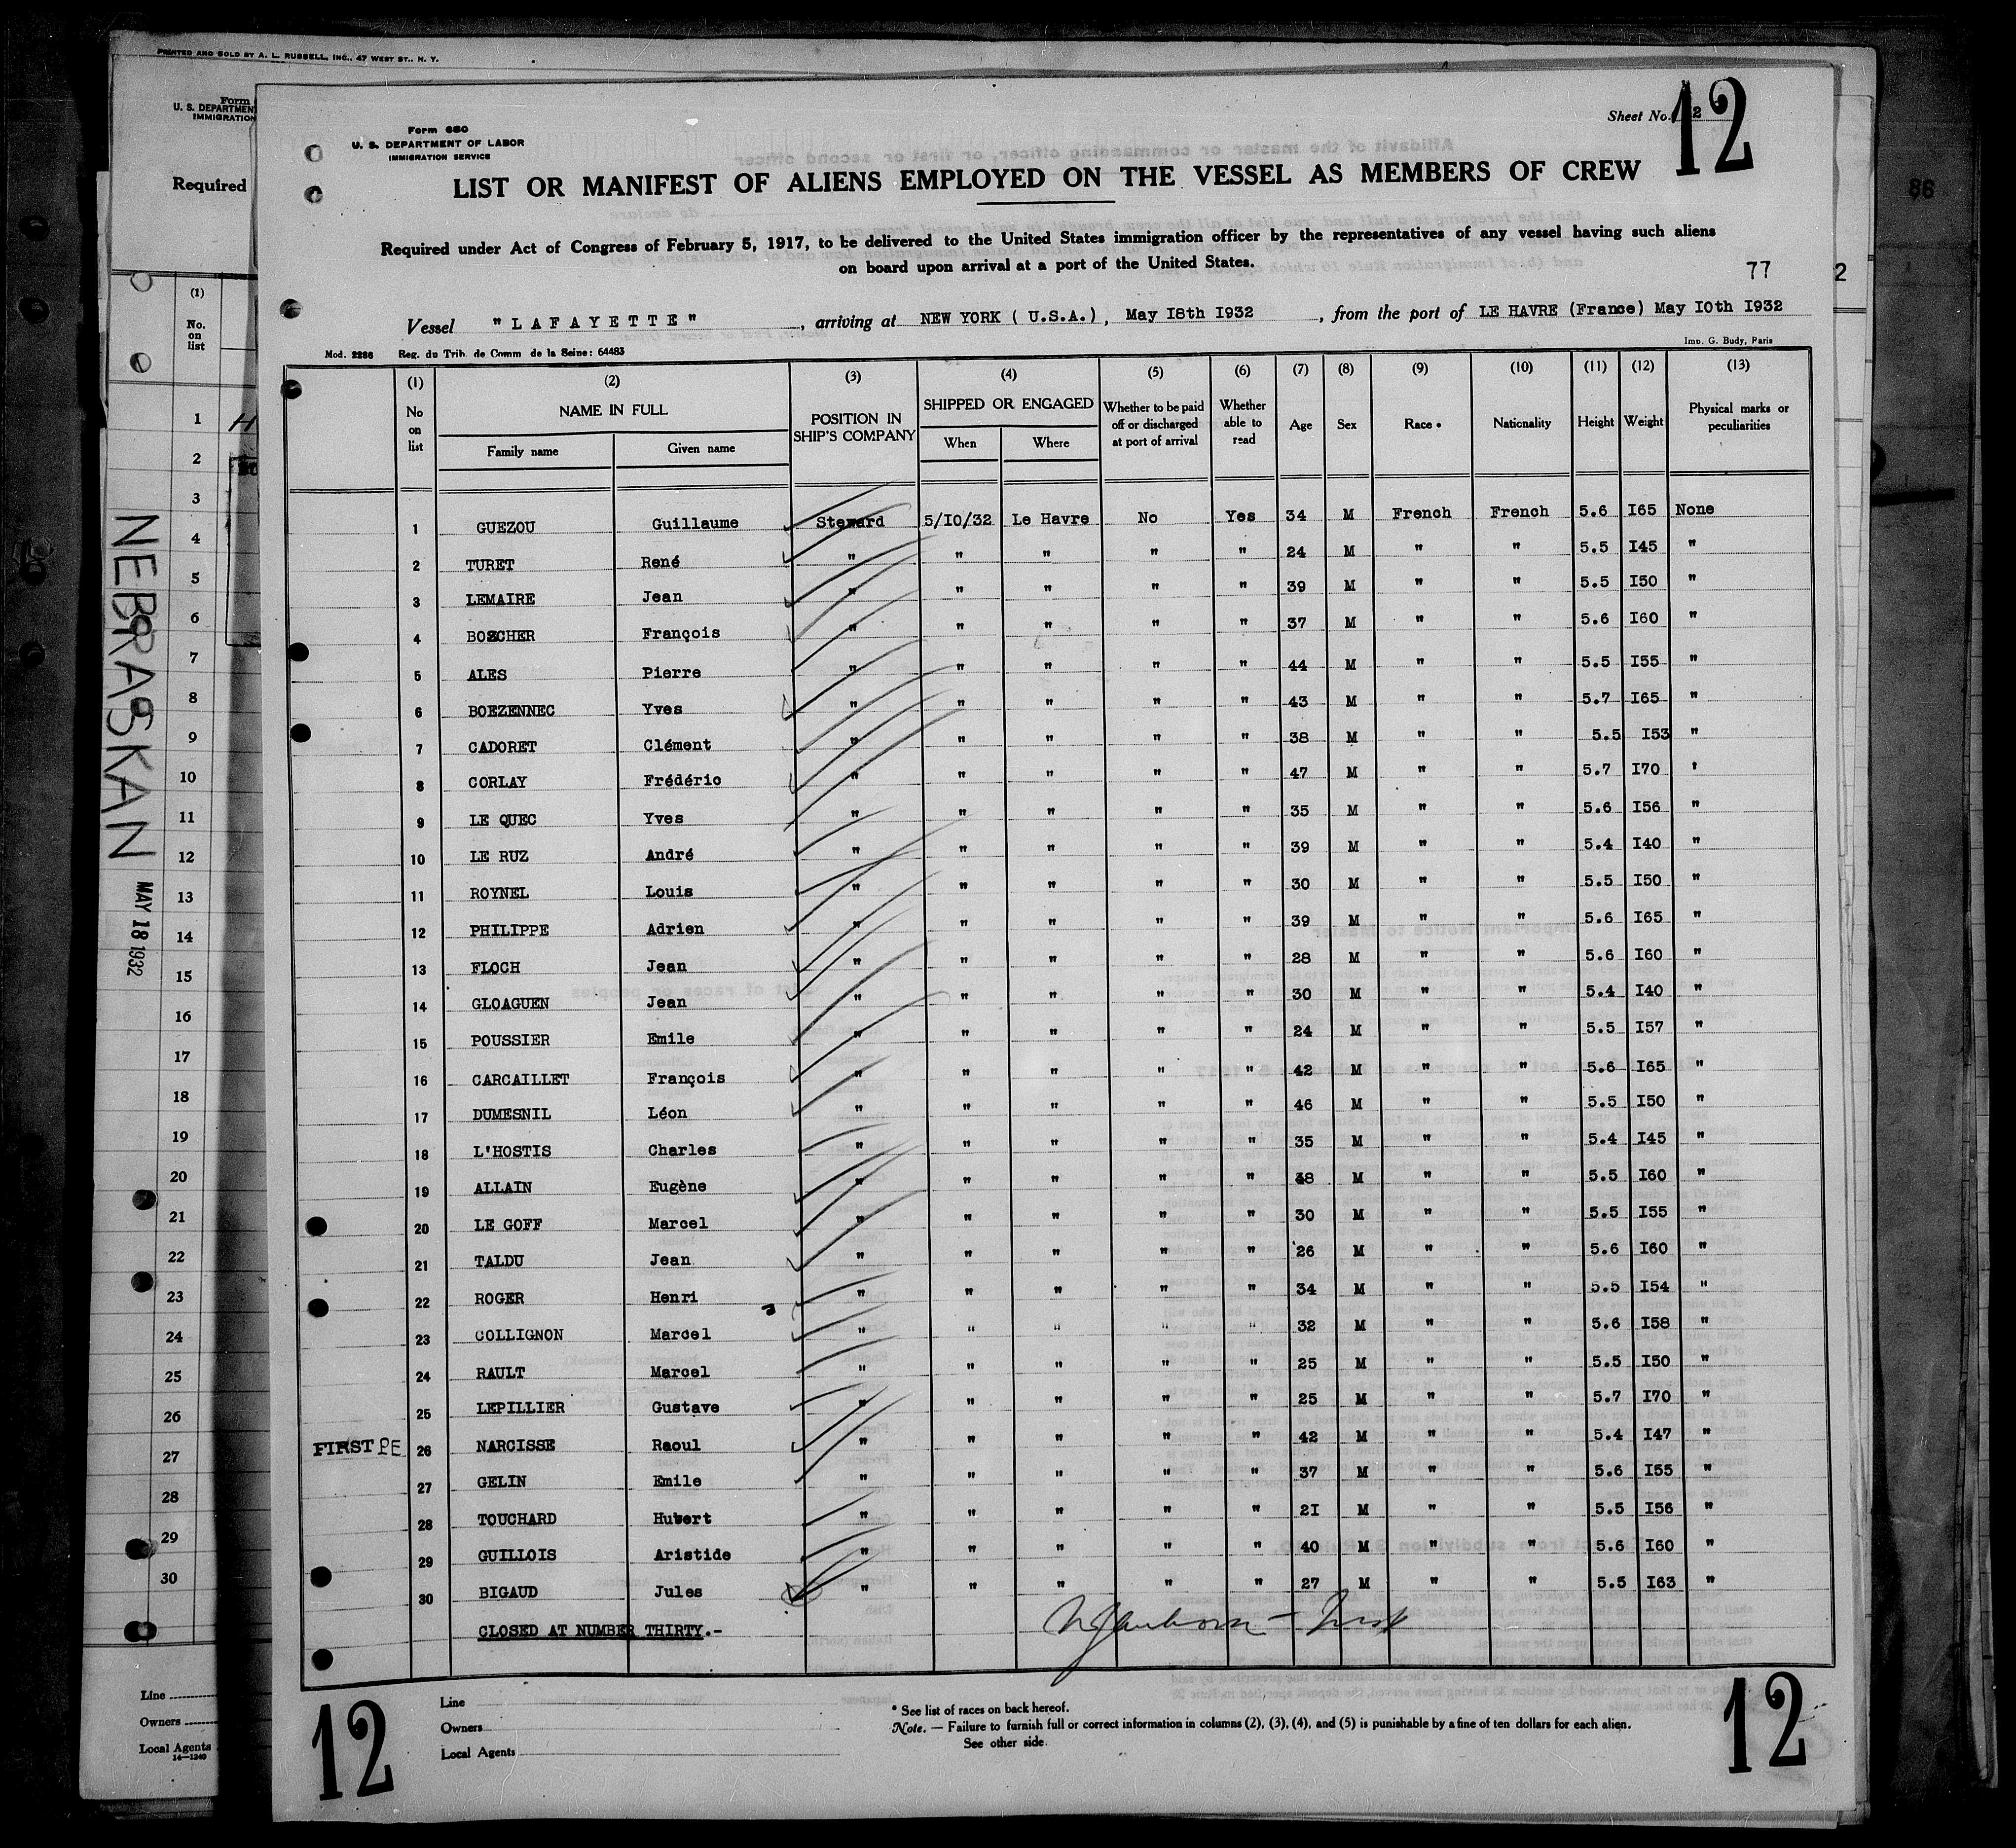 PRINTED AND SOLD BY A. L. RUSSELL, INC., 47 WEST ST., N. Y.
Form
U. S. DEPARTMENT
IMMIGRATION
Required
(1)
No.
on
list
1
2
3
4
5
6
7
8
9
10
11
12
13
14
15
16
17
18
19
20
21
22
23
24
25
26
27
28
29
30
Line
Owners
Local Agents
14—1240
NEBRASKAN
MAY 18 1932
86
2
Form 680
U. S. DEPARTMENT OF LABOR
IMMIGRATION SERVICE
Sheet No. 12
12
LIST OR MANIFEST OF ALIENS EMPLOYED ON THE VESSEL AS MEMBERS OF CREW
Required under Act of Congress of February 5, 1917, to be delivered to the United States immigration officer by the representatives of any vessel having such aliens
on board upon arrival at a port of the United States.
77
Vessel "LAFAYETTE", arriving at NEW YORK ( U.S.A.), May I8th I932, from the port of LE HAVRE (France) May I0th I932
Mod. 2286 Reg. du Trib. de Comm de la Seine: 64483
Imp. G. Budy, Paris
(1) No on list (2) NAME IN FULL Family name Given name (3) POSITION IN SHIP'S COMPANY (4) SHIPPED OR ENGAGED When Where (5) Whether to be paid off or discharged at port of arrival (6) Whether able to read (7) Age (8) Sex (9) Race * (10) Nationality (11) Height (12) Weight (13) Physical marks or peculiarities
1 GUEZOU Guillaume Steward 5/I0/32 Le Havre No Yes 34 M French French 5.6 I65 None
2 TURET René " " " " " 24 M " " 5.5 I45 "
3 LEMAIRE Jean " " " " " 39 M " " 5.5 I50 "
4 BOSCHER François " " " " " 37 M " " 5.6 I60 "
5 ALES Pierre " " " " " 44 M " " 5.5 I55 "
6 BOEZENNEC Yves " " " " " 43 M " " 5.7 I65 "
7 CADORET Clément " " " " " 38 M " " 5.5 I53 "
8 CORLAY Frédéric " " " " " 47 M " " 5.7 I70 '
9 LE QUEC Yves " " " " " 35 M " " 5.6 I56 "
10 LE RUZ André " " " " " 39 M " " 5.4 I40 "
11 ROYNEL Louis " " " " " 30 M " " 5.5 I50 "
12 PHILIPPE Adrien " " " " " 39 M " " 5.6 I65 "
13 FLOCH Jean " " " " " 28 M " " 5.6 I60 "
14 GLOAGUEN Jean " " " " " 30 M " " 5.4 I40 "
15 POUSSIER Emile " " " " " 24 M " " 5.5 I57 "
16 CARCAILLET François " " " " " 42 M " " 5.6 I65 "
17 DUMESNIL Léon " " " " " 46 M " " 5.5 I50 "
18 L'HOSTIS Charles " " " " " 35 M " " 5.4 I45 "
19 ALLAIN Eugène " " " " " 38 M " " 5.5 I60 "
20 LE GOFF Marcel " " " " " 30 M " " 5.5 I55 "
21 TALDU Jean " " " " " 26 M " " 5.6 I60 "
22 ROGER Henri " " " " " 34 M " " 5.5 I54 "
23 COLLIGNON Marcel " " " " " 32 M " " 5.6 I58 "
24 RAULT Marcel " " " " " 25 M " " 5.5 I50 "
25 LEPILLIER Gustave " " " " " 25 M " " 5.7 I70 "
FIRST PE 26 NARCISSE Raoul " " " " " 42 M " " 5.4 I47 "
27 GELIN Emile " " " " " 37 M " " 5.6 I55 "
28 TOUCHARD Hubert " " " " " 2I M " " 5.5 I56 "
29 GUILLOIS Aristide " " " " " 40 M " " 5.6 I60 "
30 BIGAUD Jules " " " " " 27 M " " 5.5 I63 "
CLOSED AT NUMBER THIRTY.-
12
Line
Owners
Local Agents
* See list of races on back hereof.
Note. — Failure to furnish full or correct information in columns (2), (3), (4), and (5) is punishable by a fine of ten dollars for each alien.
See other side.
12